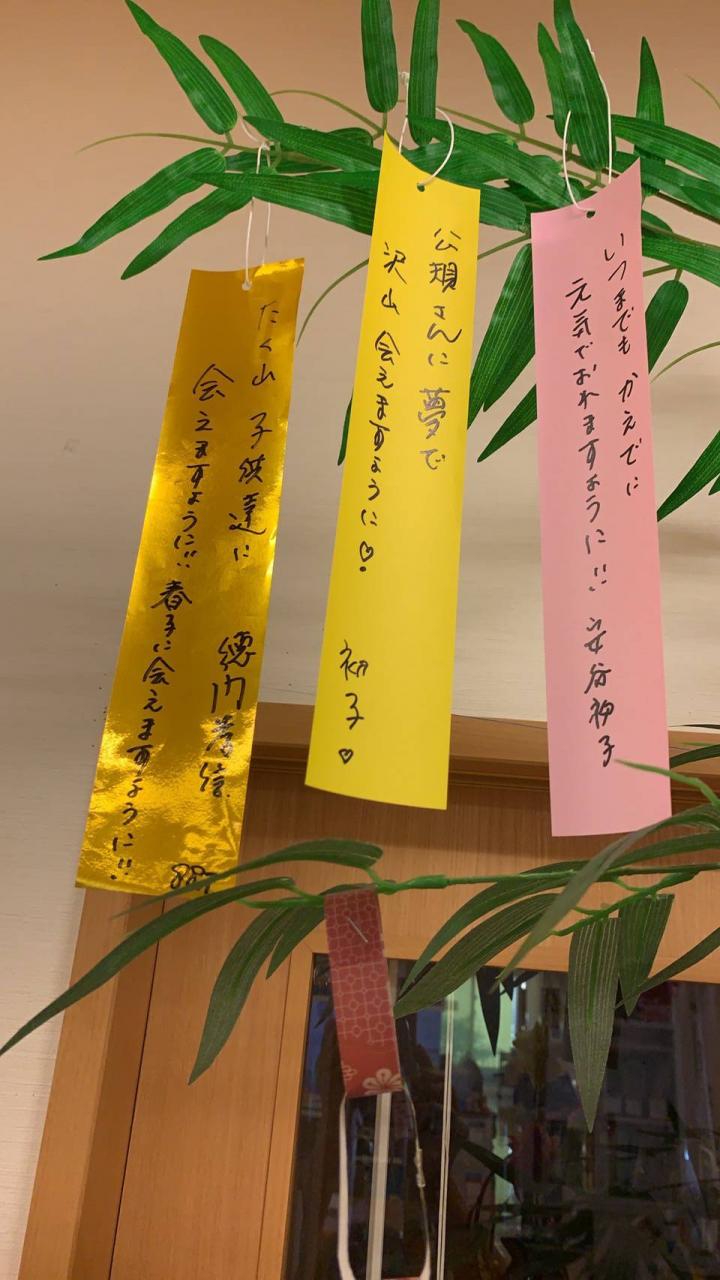 いつまでも かえでに
元気でおれますように!! 安谷初子
公規さんに 夢で
沢山 会えますように♡!
初子♡
たく山 子供達に
会えますように!!
春子に会えますように!!
徳内